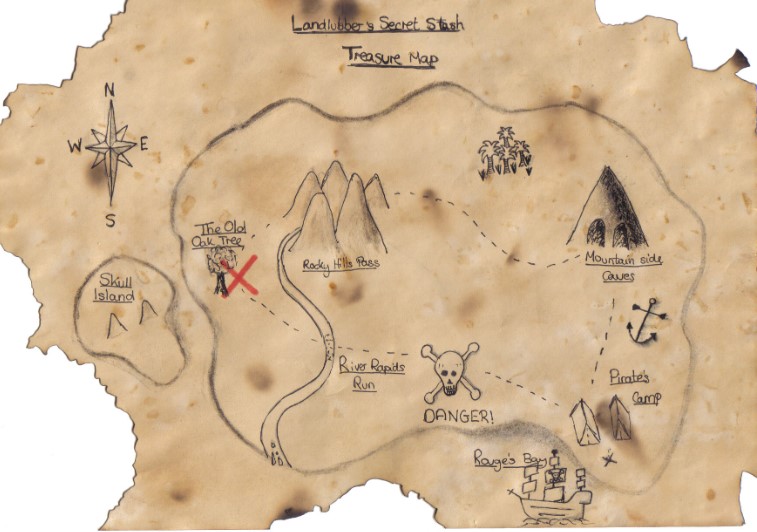 Landlubber's Secret Stash
Treasure Map
N
W E
S
The Old
Oak Tree
Rocky Hills Pass
Mountain side
Caves
Skull
Island
River Rapids
Run
DANGER!
Pirate's
Camp
Rouge's Bay